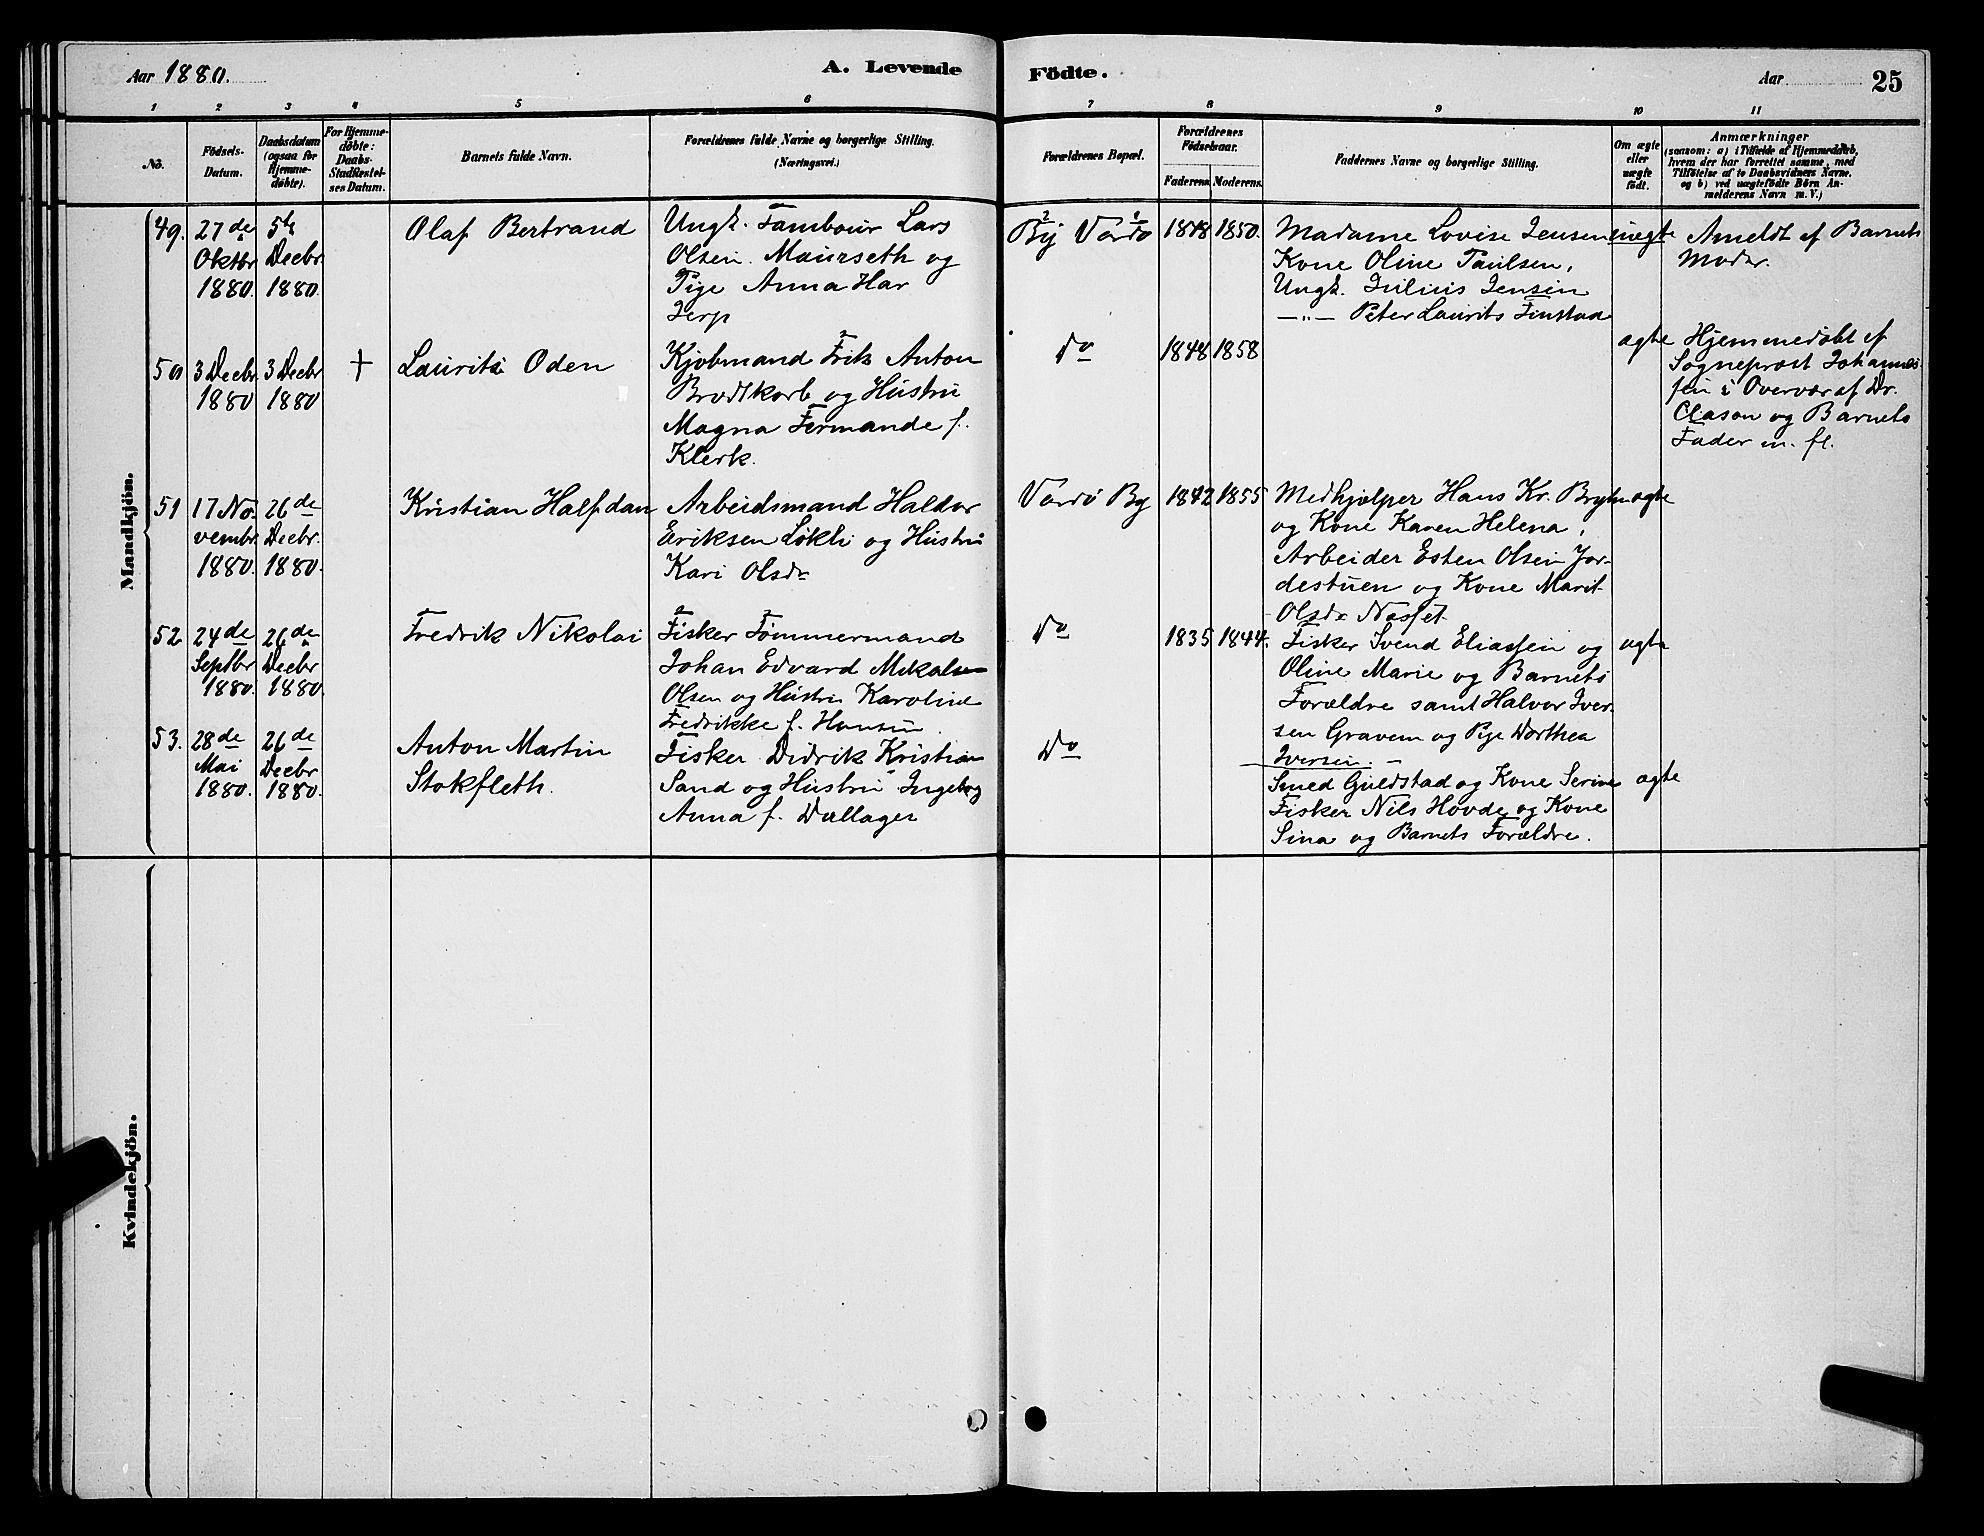 Aar 1880.
A. Levende Födte.
Aar
25
1 2 3 4 5 6 7 8 9 10 11
No.
Födsels-
Datum.
Daabsdatum
(ogsaa for
Hjemme-
døbte).
For Hjemme-
døbte:
Daabs-
Stadfæstel-
ses Datum.
Barnets fulde Navn.
Forældrenes fulde Navne og borgerlige Stilling.
(Næringsvei.)
Forældrenes Bopæl.
Forældrenes
Födselsaar.
Faderens. Moderens.
Faddernes Navne og borgerlige Stilling.
Om ægte
eller
uægte
født.
Anmærkninger
(saasom: a) i Tilfælde af Hjemmedaab,
hvem der har forrettet samme, med
Tilföielse af to Daabsvidners Navne,
og b) ved uægtefödte Börn An-
melderens Navn m. V.)
Mandkjön.
49.
27de
Oktbr
1880.
5te
Decbr
1880.
Olaf Bertrand
Ungk. Tambour Lars
Olsen Maurseth og
Pige Anna Har
Jerp
By Vardö
1848
1850.
Madame Lovise Jensen
Kone Oline Paulsen,
Ungk. Julius Jensen
—„— Peter Laurits Finstad
uægte
Anmeldt af Barnets
Moder.
50
3 Decbr
1880
3 Decbr
1880
+
Laurits Oden
Kjøbmand Frits Anton
Brodtkorb og Hustru
Magna Fermande f.
Klerk.
do
1848
1858
ægte
Hjemmedøbt af
Sogneprest Johannes-
sen i Overvær af Dr.
Clason og Barnets
Fader m. fl.
51
17 No-
vembr.
1880.
26de
Decbr.
1880.
Kristian Halfdan
Arbeidsmand Haldor
Eriksen Løkli og Hustru
Kari Olsdr
Vardö By
1842
1855
Medhjælper Hans Kr. Bryhn
og Kone Karen Helena,
Arbeider Esten Olsen Jor-
destuen og Kone Marit
Olsdr Nasset
ægte
52
24de
Septbr
1880.
26de
Decbr
1880.
Fredrik Nikolai
Fisker Tømmermand
Johan Edvard Mikalsen
Olsen og Hustru Karoline
Fredrikke f. Hansen.
do
1835
1844.
Fisker Svend Eliassen og
Oline Marie og Barnets
Forældre samt Halvor Iver-
sen Gravem og Pige Dorthea
Iversen.
ægte
53.
28de
Mai
1880.
26de
Decbr
1880.
Anton Martin
Stokfleth.
Fisker Didrik Kristian
Sand og Hustru Ingeborg
Anna f. Dallager
Do
Smed Guldstad og Kone Serine
Fisker Nils Hovde og Kone
Sina og Barnets Forældre.
ægte
Kvindekjön.